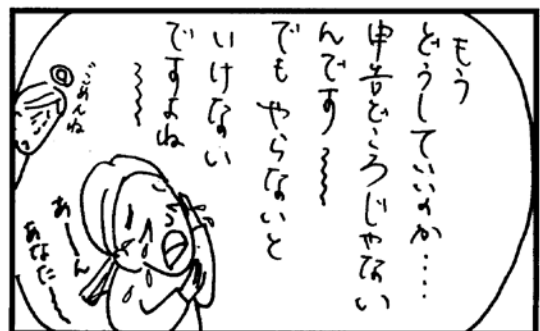 もう
どうしていいのか・・・・
申告どころじゃない
んです〜〜
でもやらないと
いけない
ですよね
〜〜
ごめんね
あーん
あなた〜〜